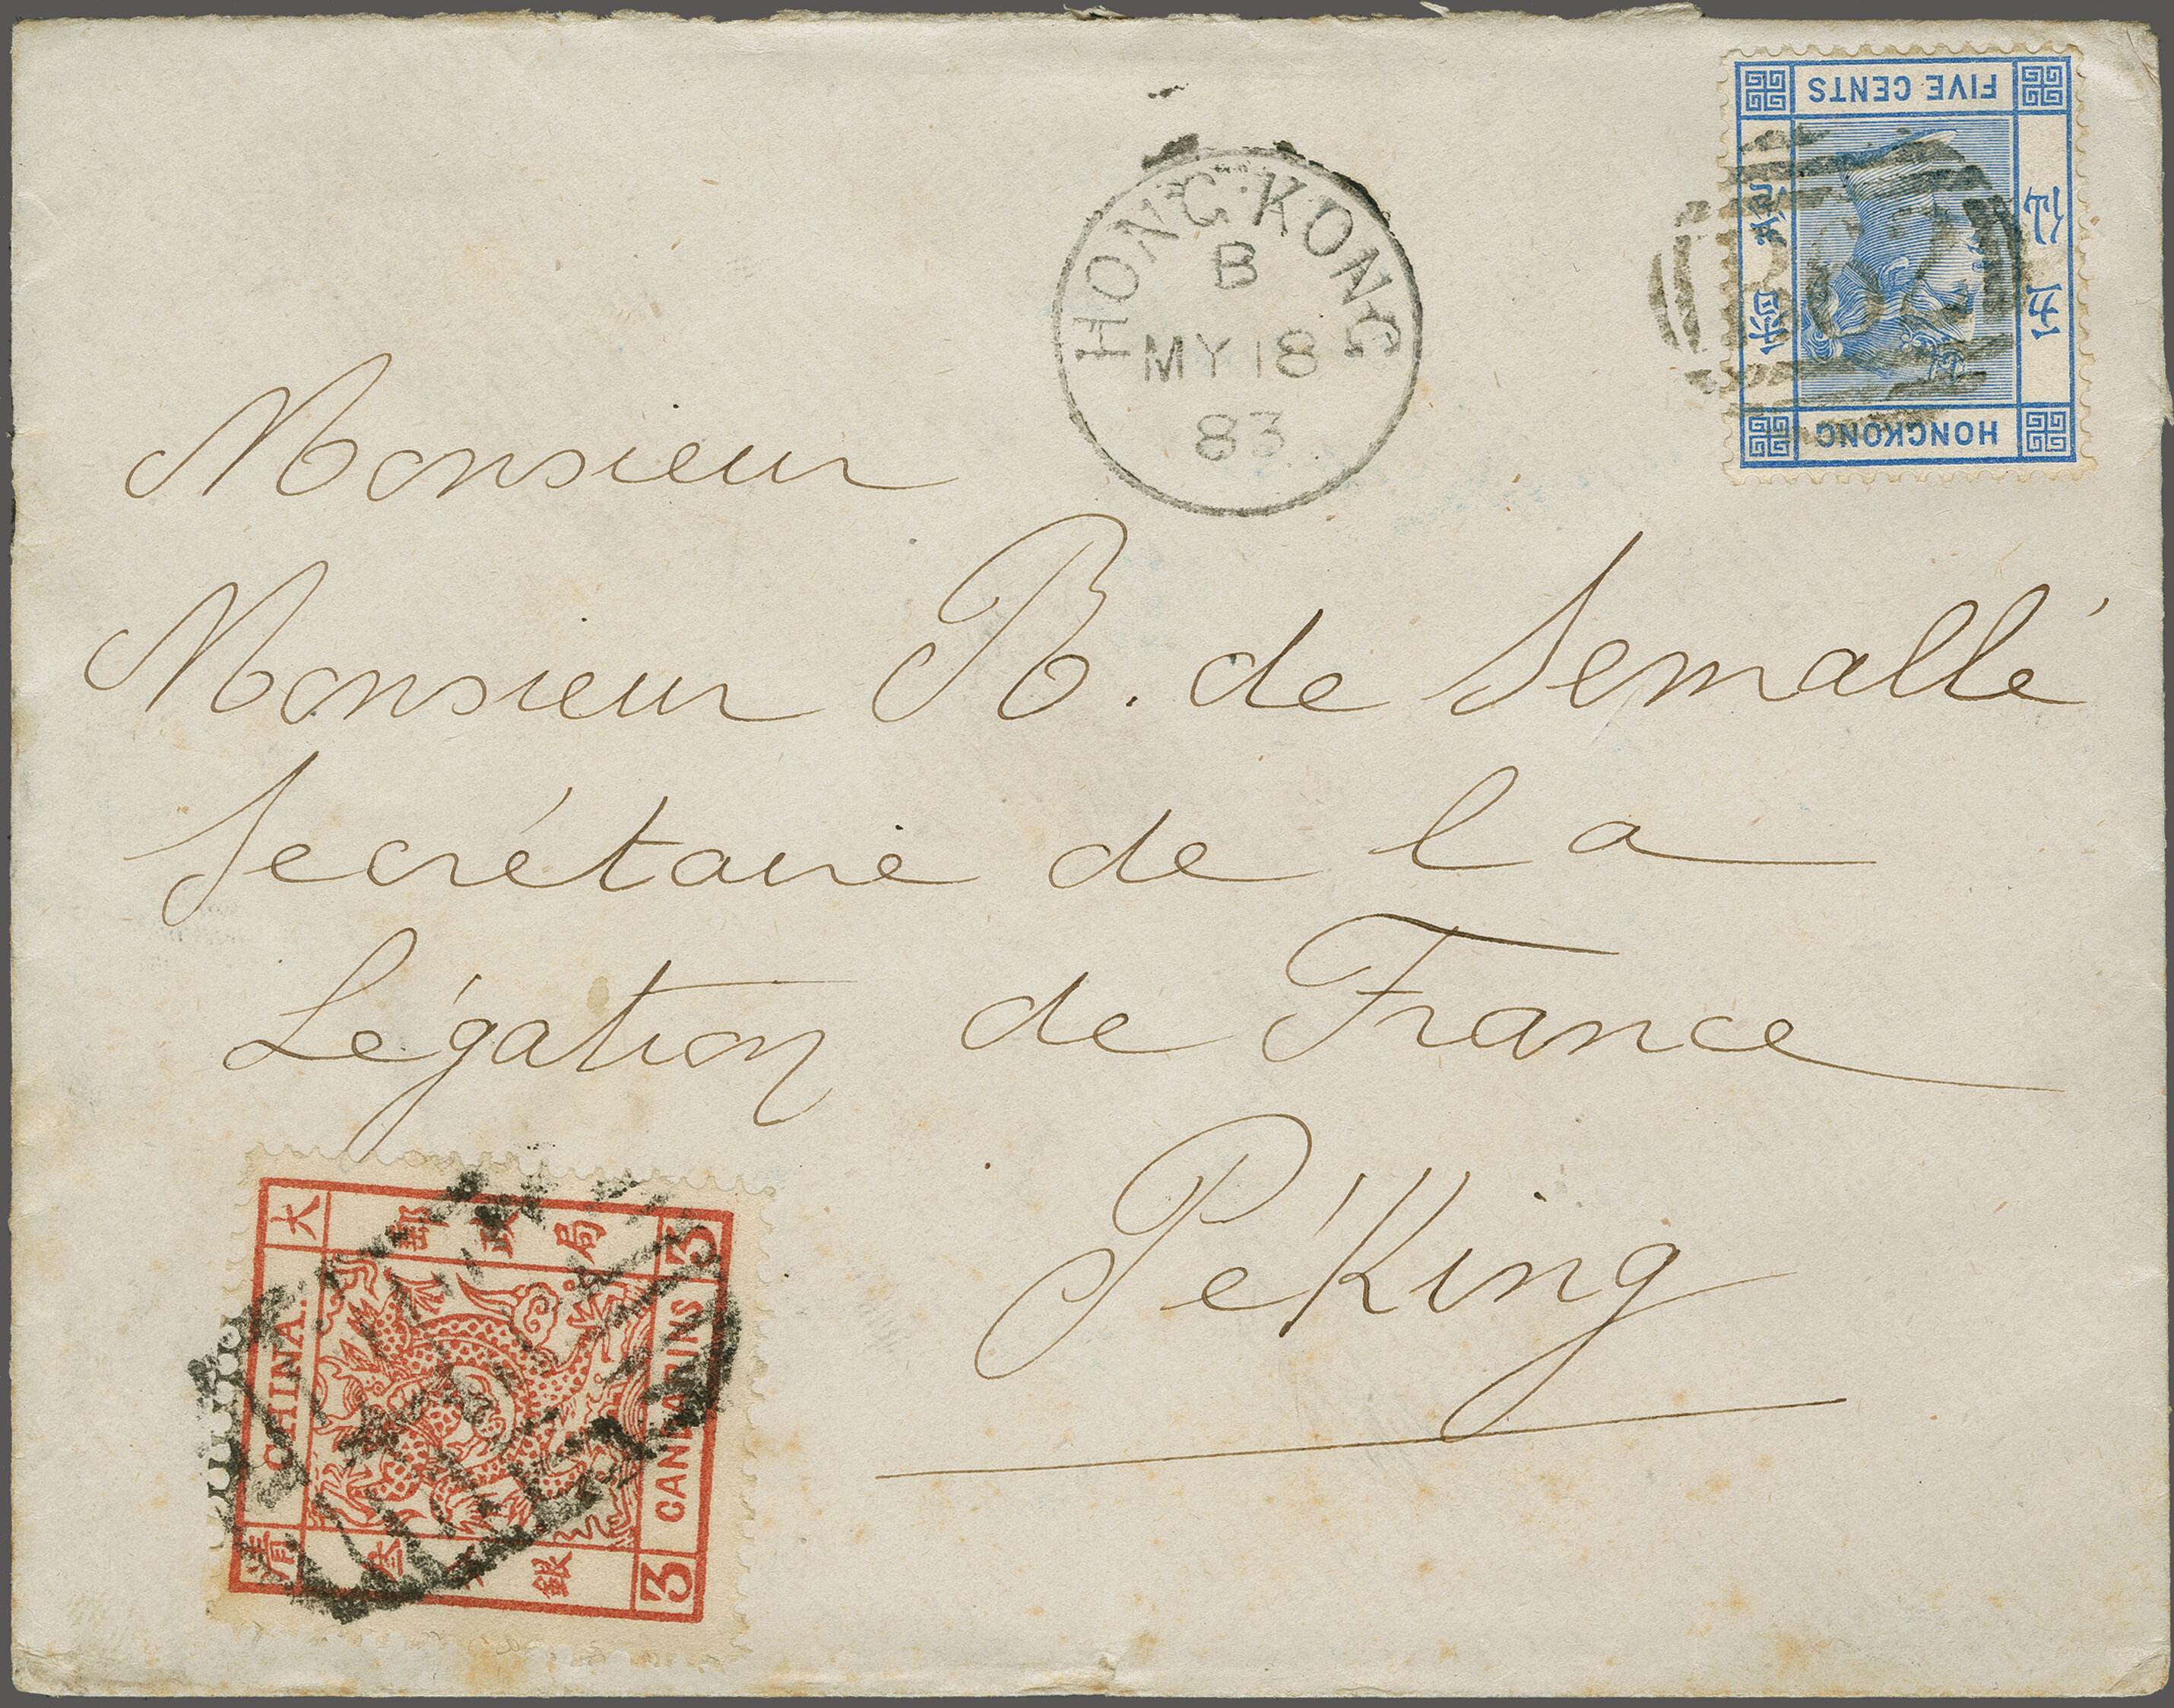 FIVE CENTS
HONGKONG
HONG·KONG
B
MY 18
83
Monsieur
Monsieur R. de Semallé
Secrétaire de la
Légation de France
Péking
大 郵 政 局 3
CHINA.
CANDARINS
清 銀 3